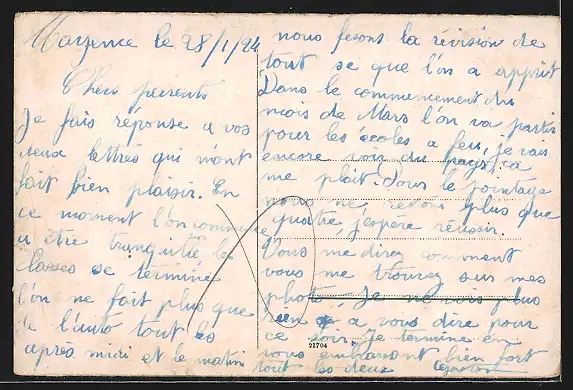 Mayence le 28/1/24
Cher parents
Je fais réponse a vos
deux lettres qui m'ont
fait bien plaisir. En
ce moment l'on commence
a être tranquille, les
classes se termine
l'on ne fait plus que
de l'auto tout les
après midi et le matin
nous fesons la révision de
tout se que l'on a apprit
Dans le commencement du
mois de Mars l'on va partir
pour les écoles a feu, je vais
encore voir du pays, ça
me plait. Pour le pointage
nous ne restons plus que
quatre, j'espère réussir.
Vous me direz comment
vous me trouvez sur mes
photo, Je ne vois plus
rien a vous dire pour
ce soir, je termine en
vous embrassant bien fort
tout les deux
21704